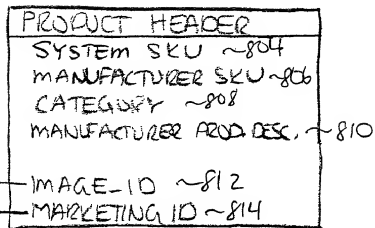 PRODUCT HEADER
SYSTEM SKU ~804
MANUFACTURER SKU ~806
CATEGORY ~808
MANUFACTURER PROD. DESC. ~810
IMAGE_ID ~812
MARKETING ID ~814